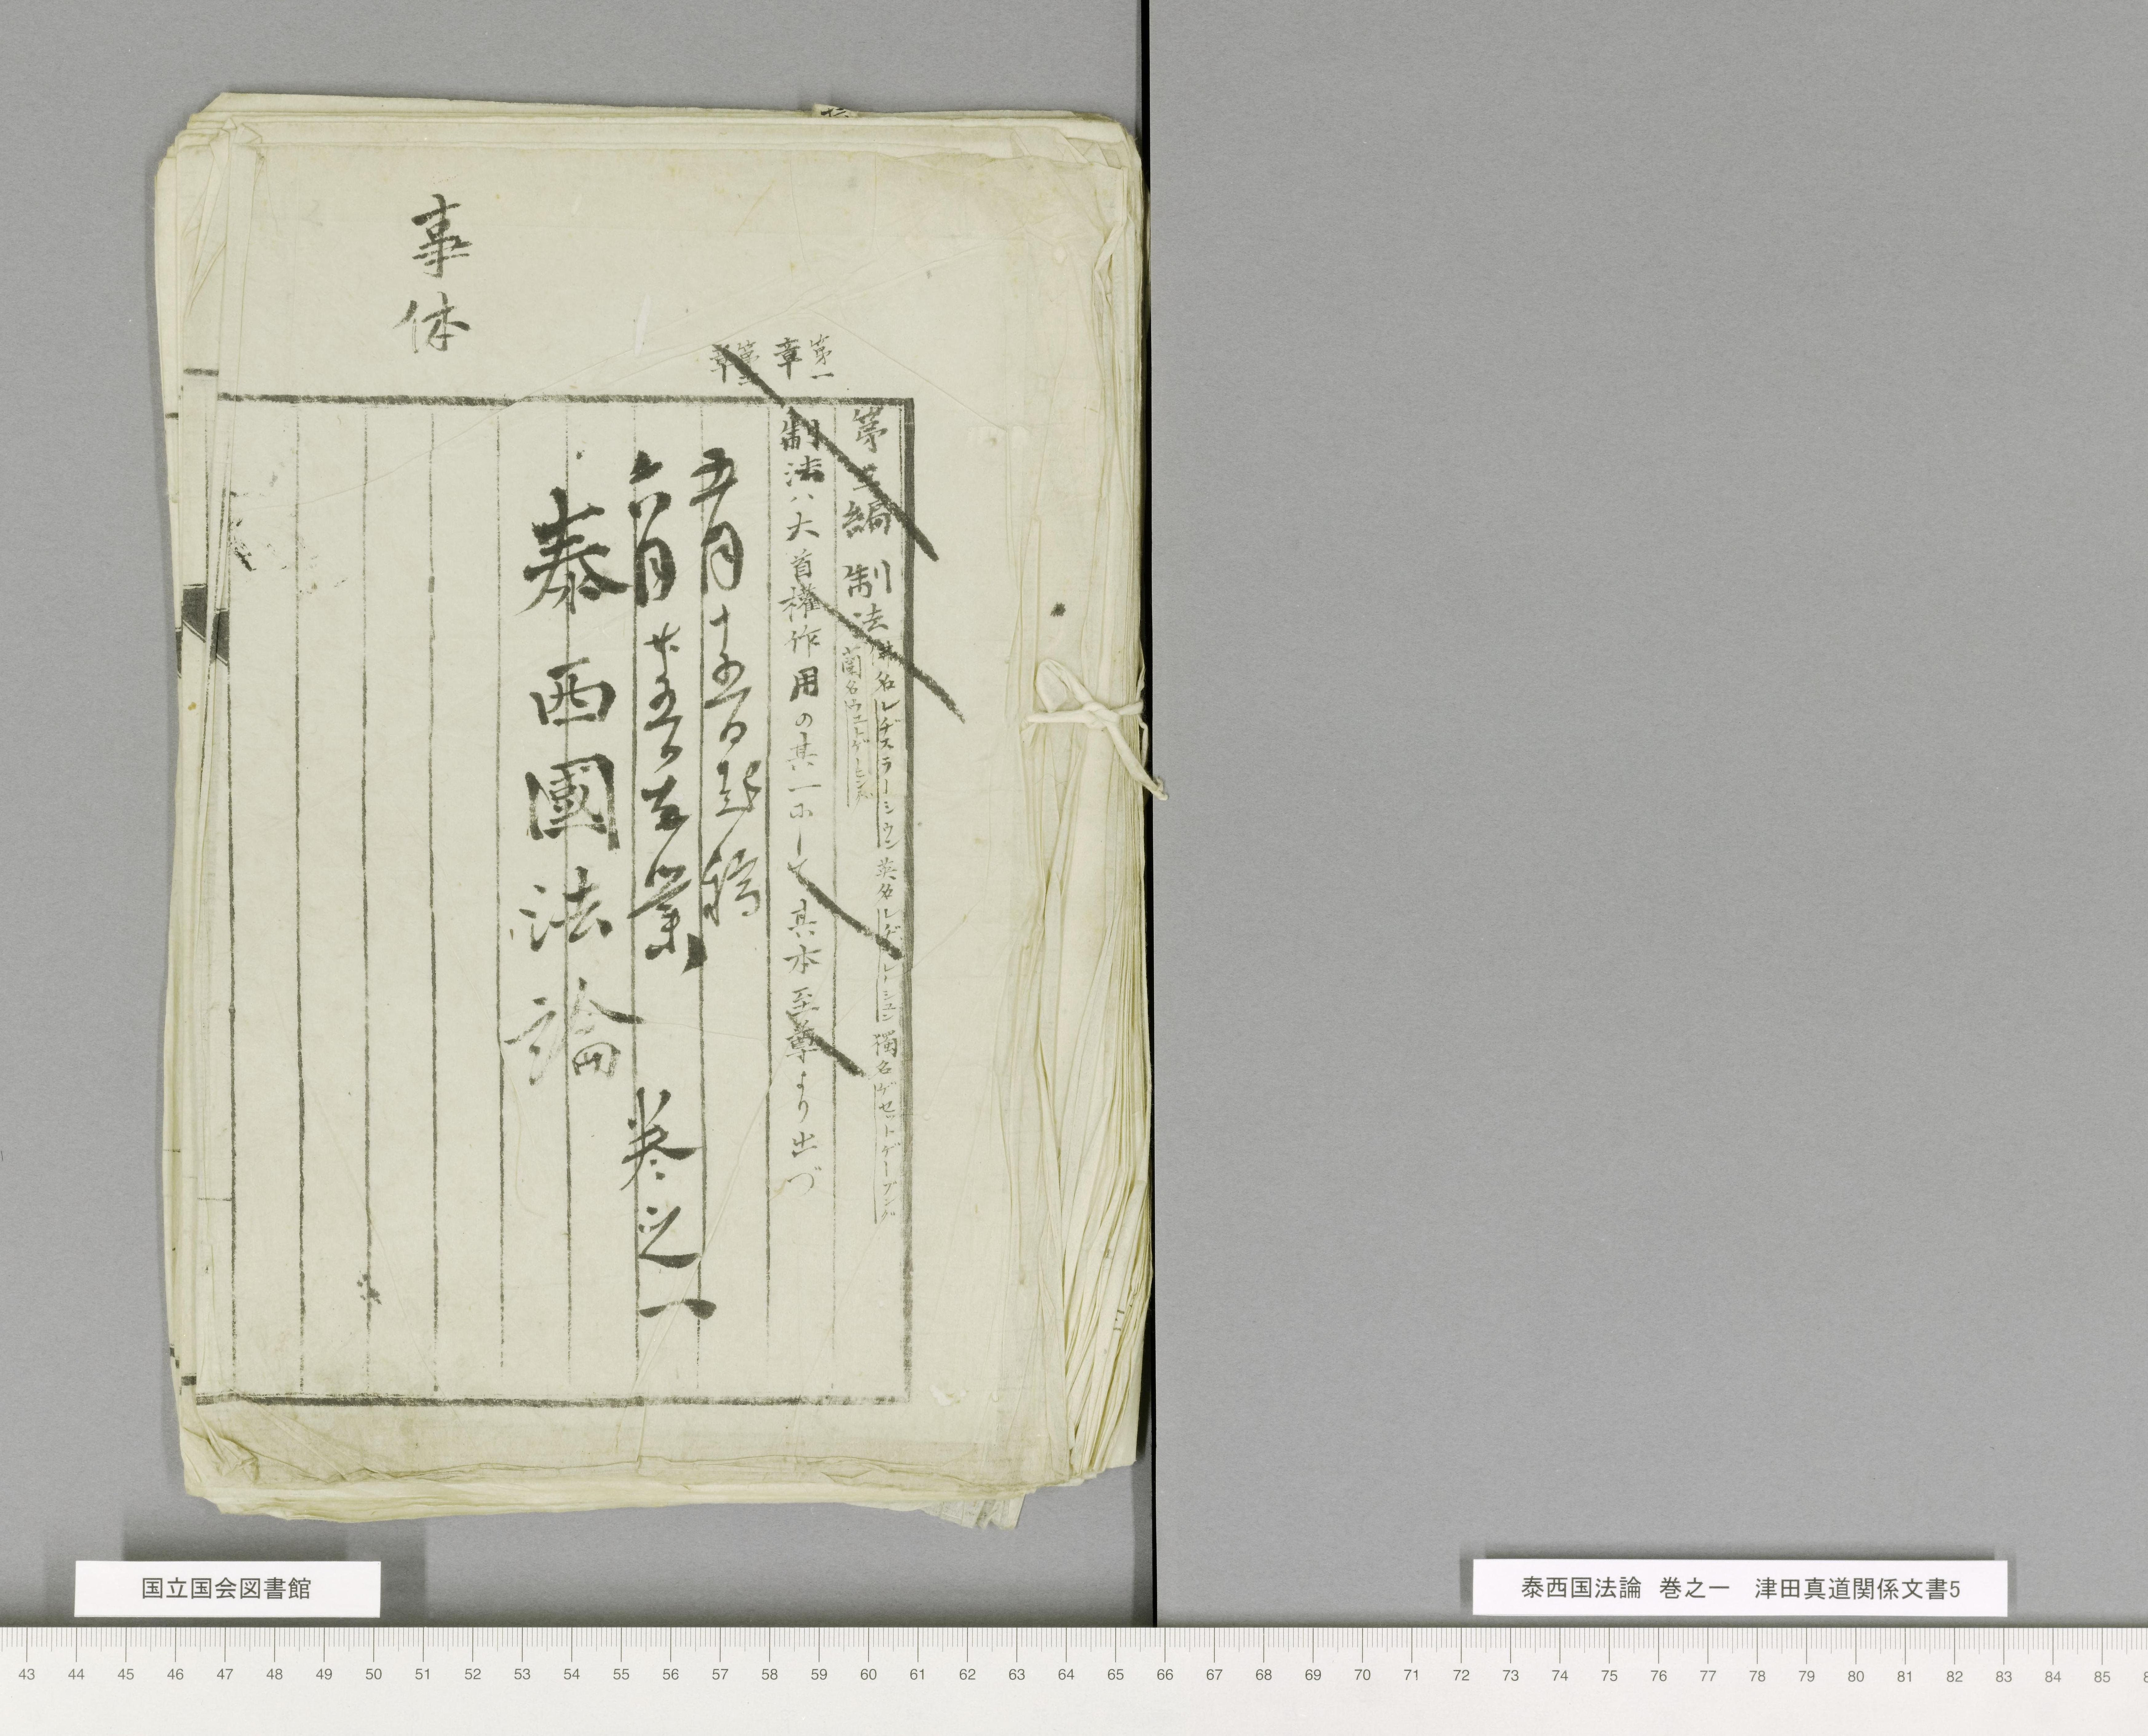 第三編 制法
佛名レヂスラーシウン 英名レゲスレーシユン 獨名ゲセットゲーブング
蘭名ウエトゲーヒング
第一章
制法ハ大首權作用の其一にして其本至尊より出づ
五月十五日起稿
六月廿五日卒業
泰西國法論 巻之一
事体
国立国会図書館
泰西国法論 巻之一 津田真道関係文書5
43 44 45 46 47 48 49 50 51 52 53 54 55 56 57 58 59 60 61 62 63 64 65 66 67 68 69 70 71 72 73 74 75 76 77 78 79 80 81 82 83 84 85